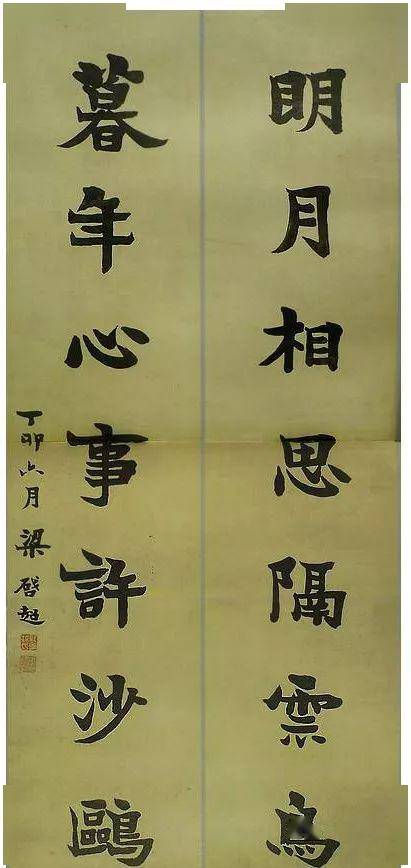 明月相思隔雲鳥
暮年心事許沙鷗
丁卯六月 梁啓超